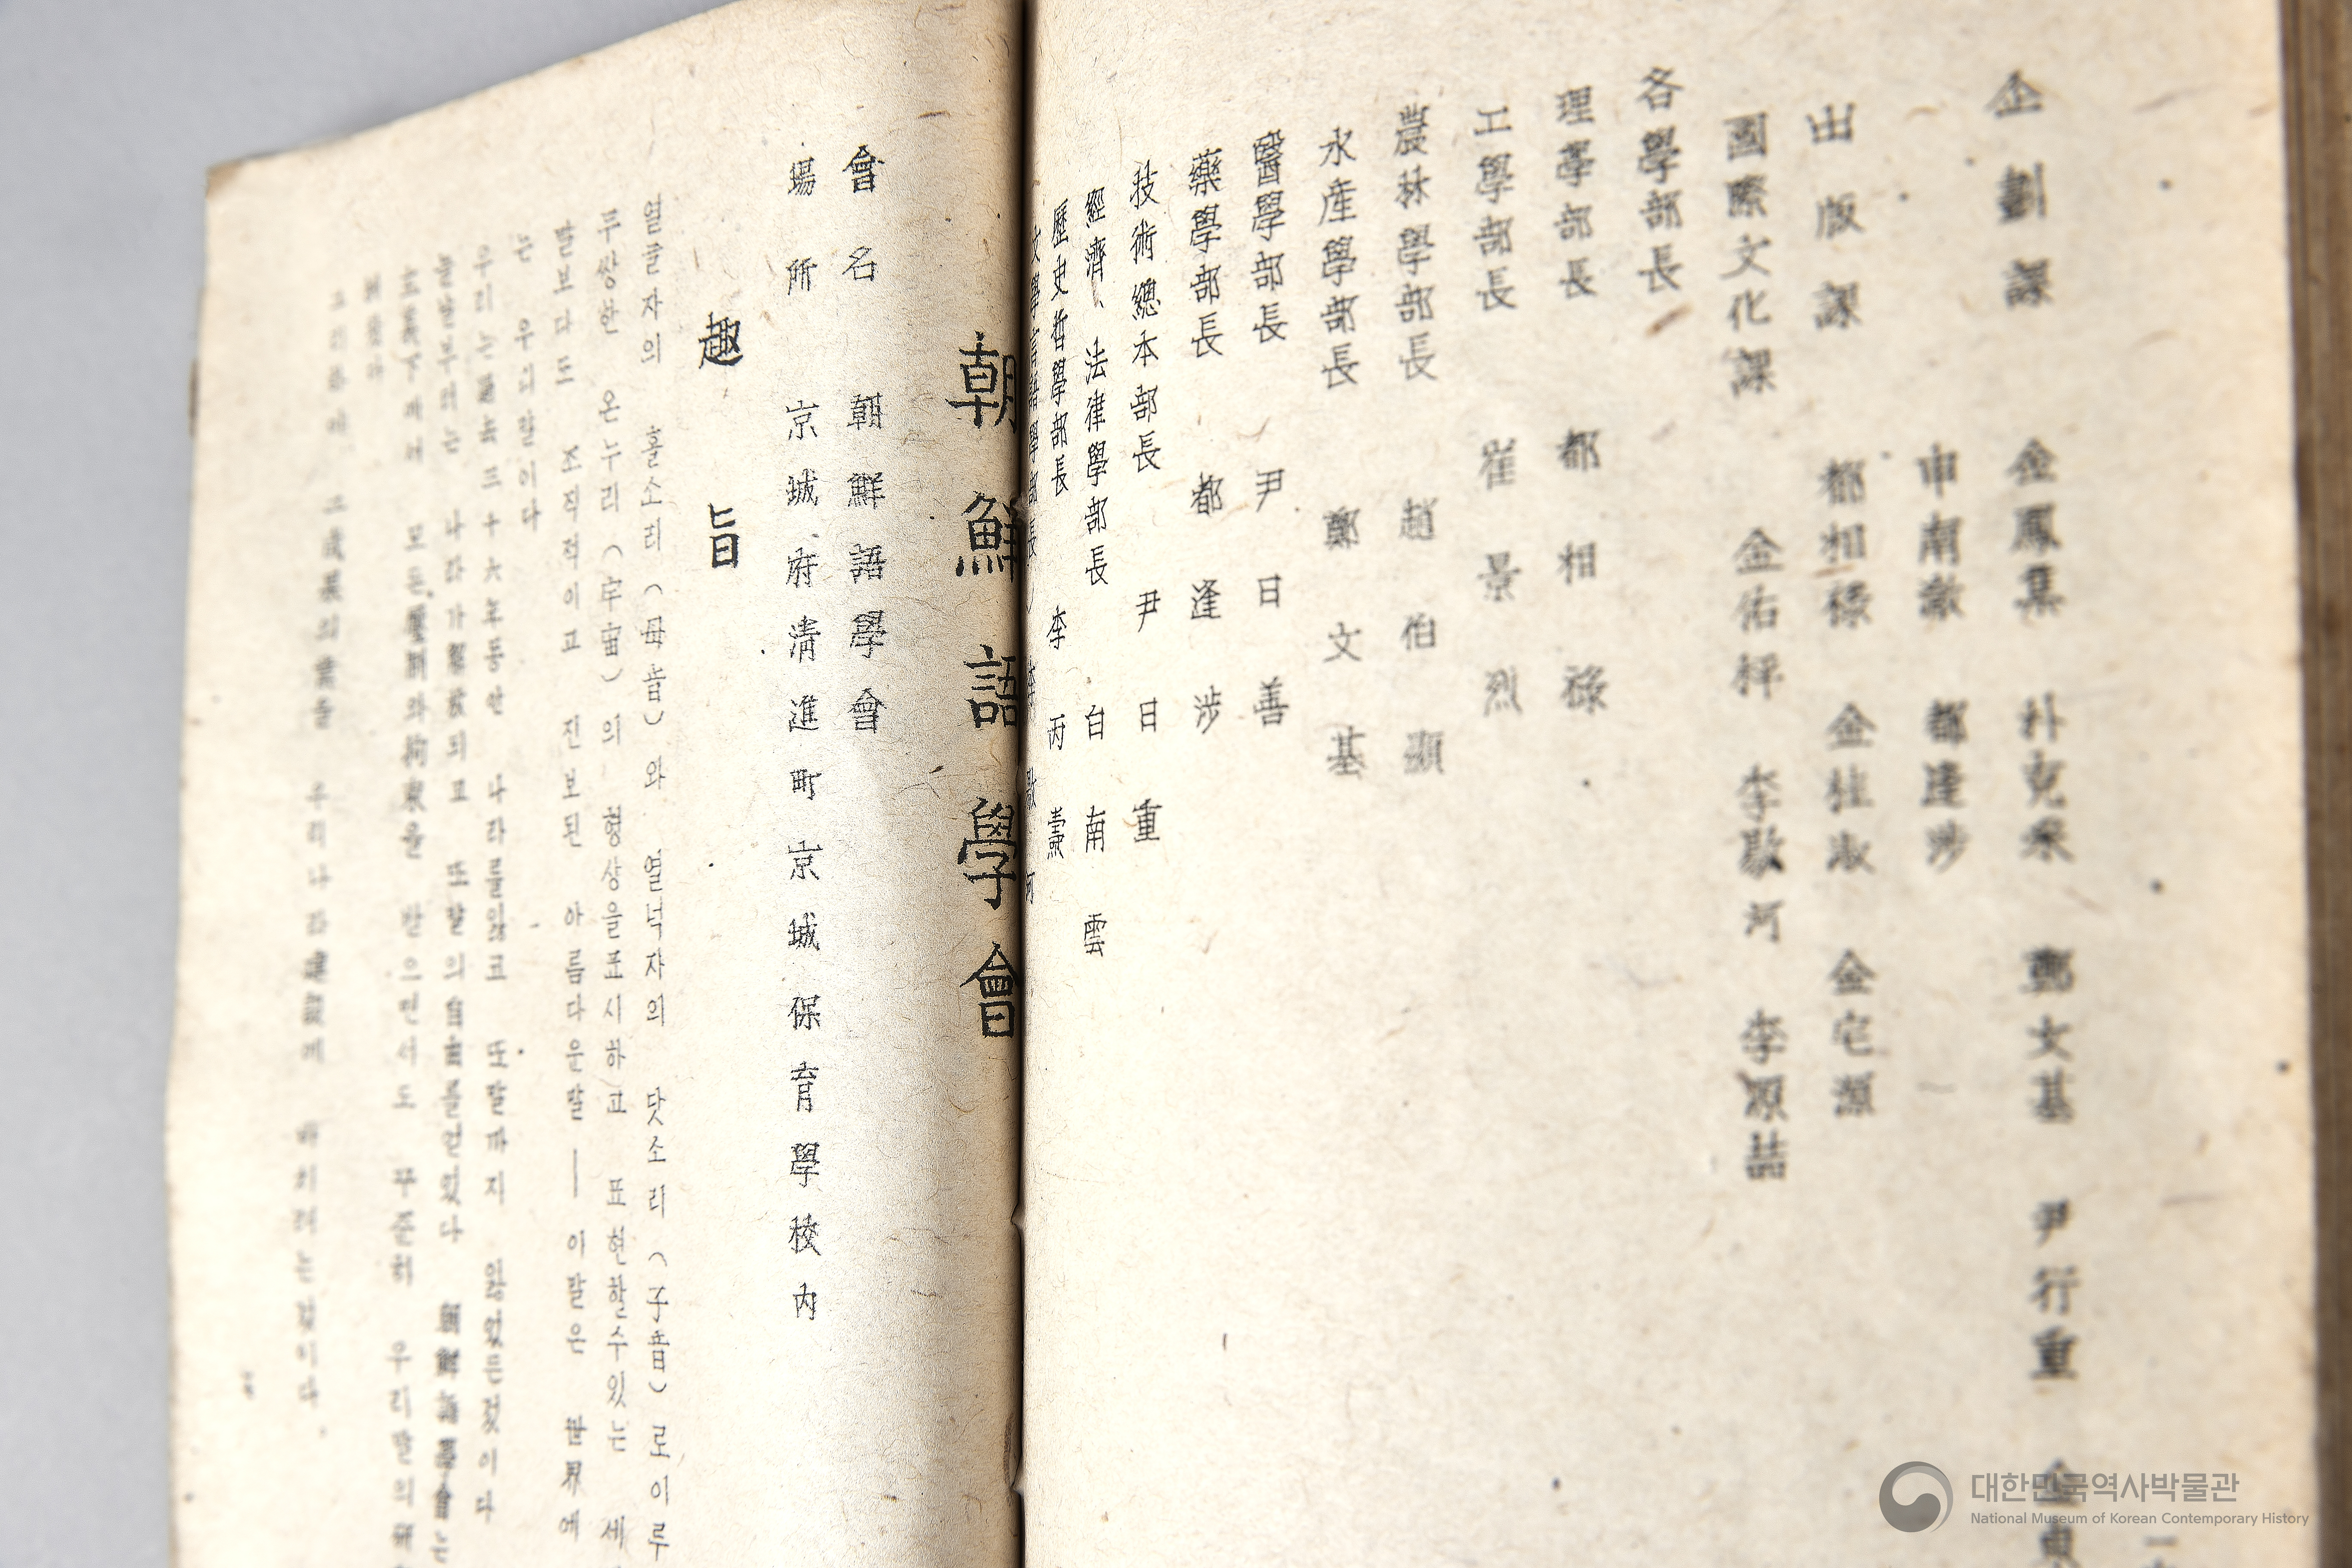 企劃課 金鳳集 朴克采 鄭文基 尹行重
申南澈 都逢涉
出版課 都相祿 金桂淑 金宅源
國際文化課 金佑枰 李敭河 李源喆
各學部長
理學部長 都相祿
工學部長 崔景烈
農林學部長 趙伯顯
水産學部長 鄭文基
醫學部長 尹日善
藥學部長 都逢涉
技術總本部長 尹日重
經濟、法律學部長 白南雲
歷史哲學部長 李丙燾
文學言語學部長 李敭河
朝鮮語學會
會名 朝鮮語學會
場所 京城府淸進町京城保育學校內
趣旨
열글자의 홀소리(母音)와 열넉자의 닷소리(子音)로이루
두쌍한 온누리(宇宙)의 형상을표시하고 표현할수있는 세
말보다도 조직적이고 진보된 아름다운말―이말은 世界에
는 우리말이다
우리는過去三十六年동안 나라를잃고 또말까지 잃었든것이다
나라가解放되고 또말의自由를얻었다 朝鮮語學會는
모든壓制와拘束을 받으면서도 꾸준히 우리말의
그러므로 우리나라建設에 바치려는것이다.
대한민국역사박물관
National Museum of Korean Contemporary History